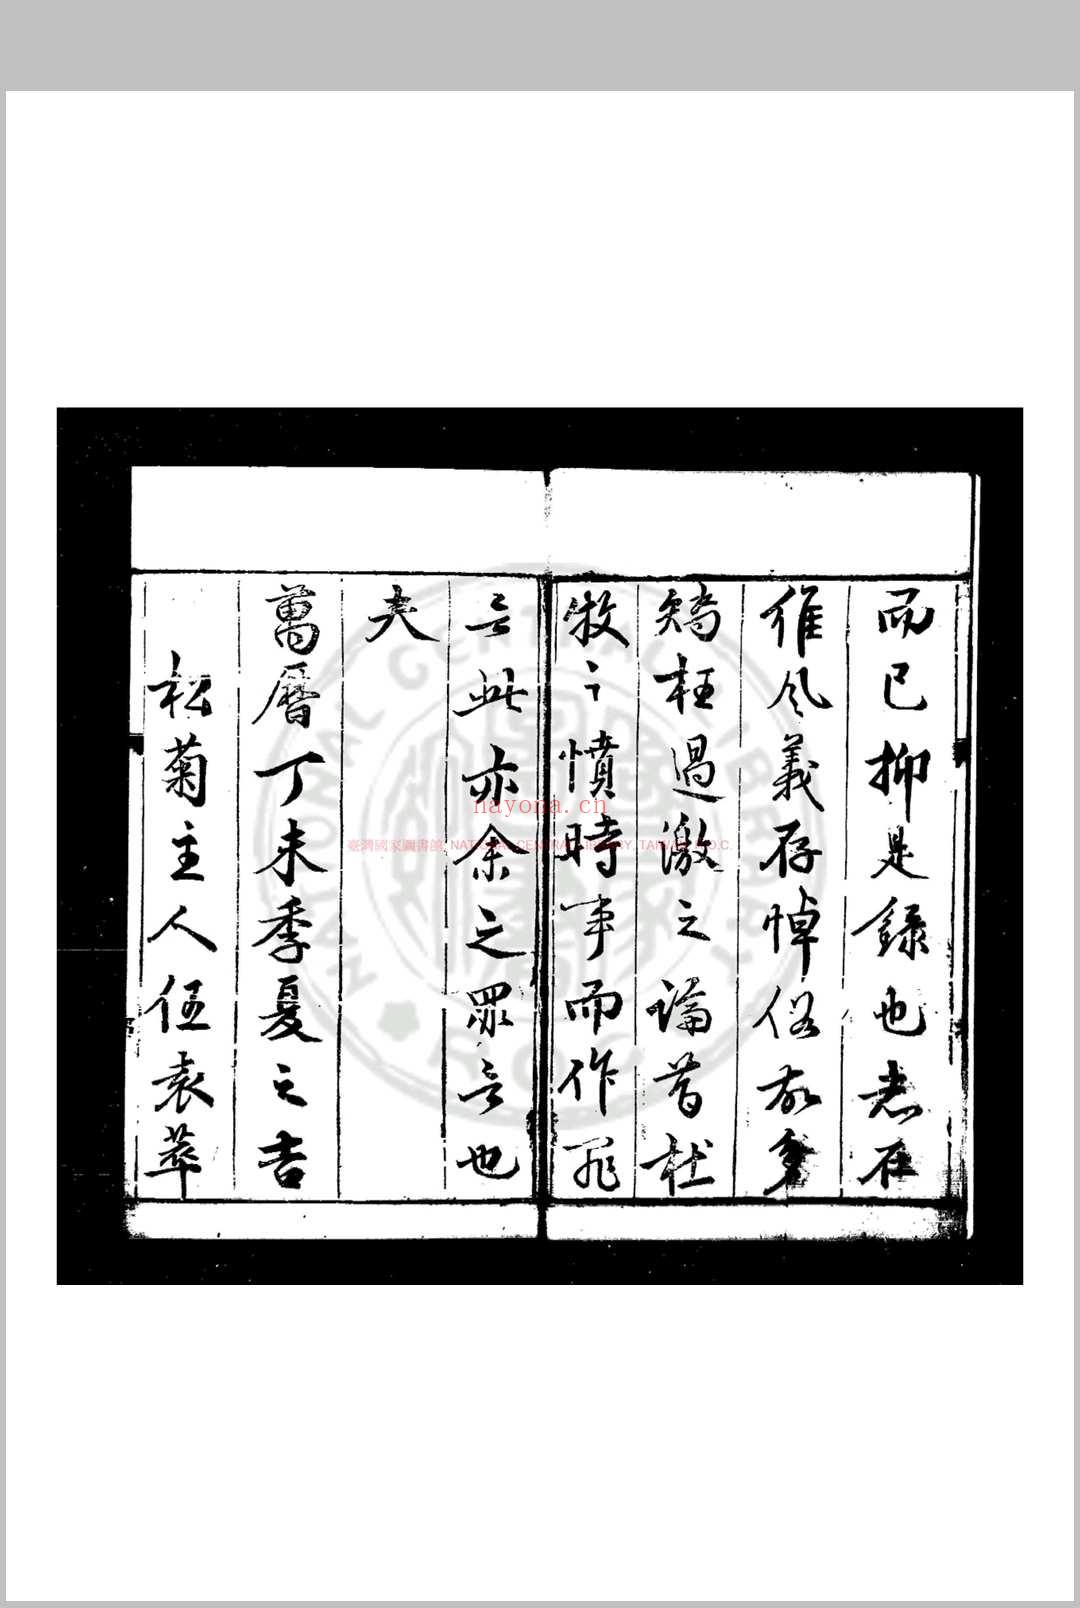 而已抑是錄也志在
維風義存悼俗故多
矯枉過激之論昔杜
牧之憤時事而作罪
言此亦余之罪言也
夫
萬曆丁未季夏之吉
松菊主人伍袁萃
nayona.cn
臺灣國家圖書館 NATIONAL CENTRAL LIBRARY, TAIWAN, R.O.C.
NATIONAL CENTRAL LIBRARY R.O.C.